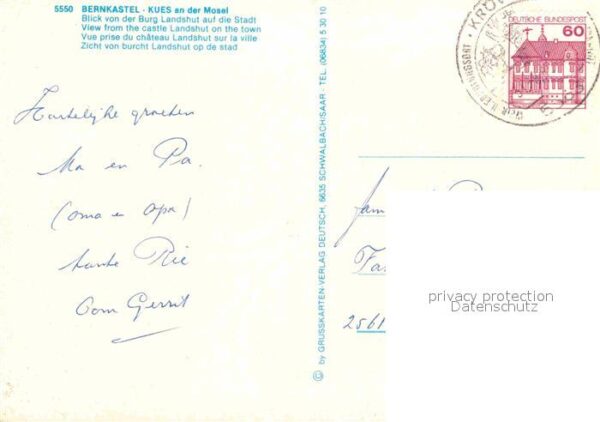 5550 BERNKASTEL - KUES an der Mosel
Blick von der Burg Landshut auf die Stadt
View from the castle Landshut on the town
Vue prise du château Landshut sur la ville
Zicht von burcht Landshut op de stad
Hartelijke groeten
Ma en Pa.
(oma en opa)
tante Rie
Oom Gerrit
© by GRUSSKARTEN-VERLAG DEUTSCH, 6635 SCHWALBACH/SAAR - TEL. (06834) 5 30 10
DEUTSCHE BUNDESPOST
60
KRÖV
fam
2561
privacy protection
Datenschutz